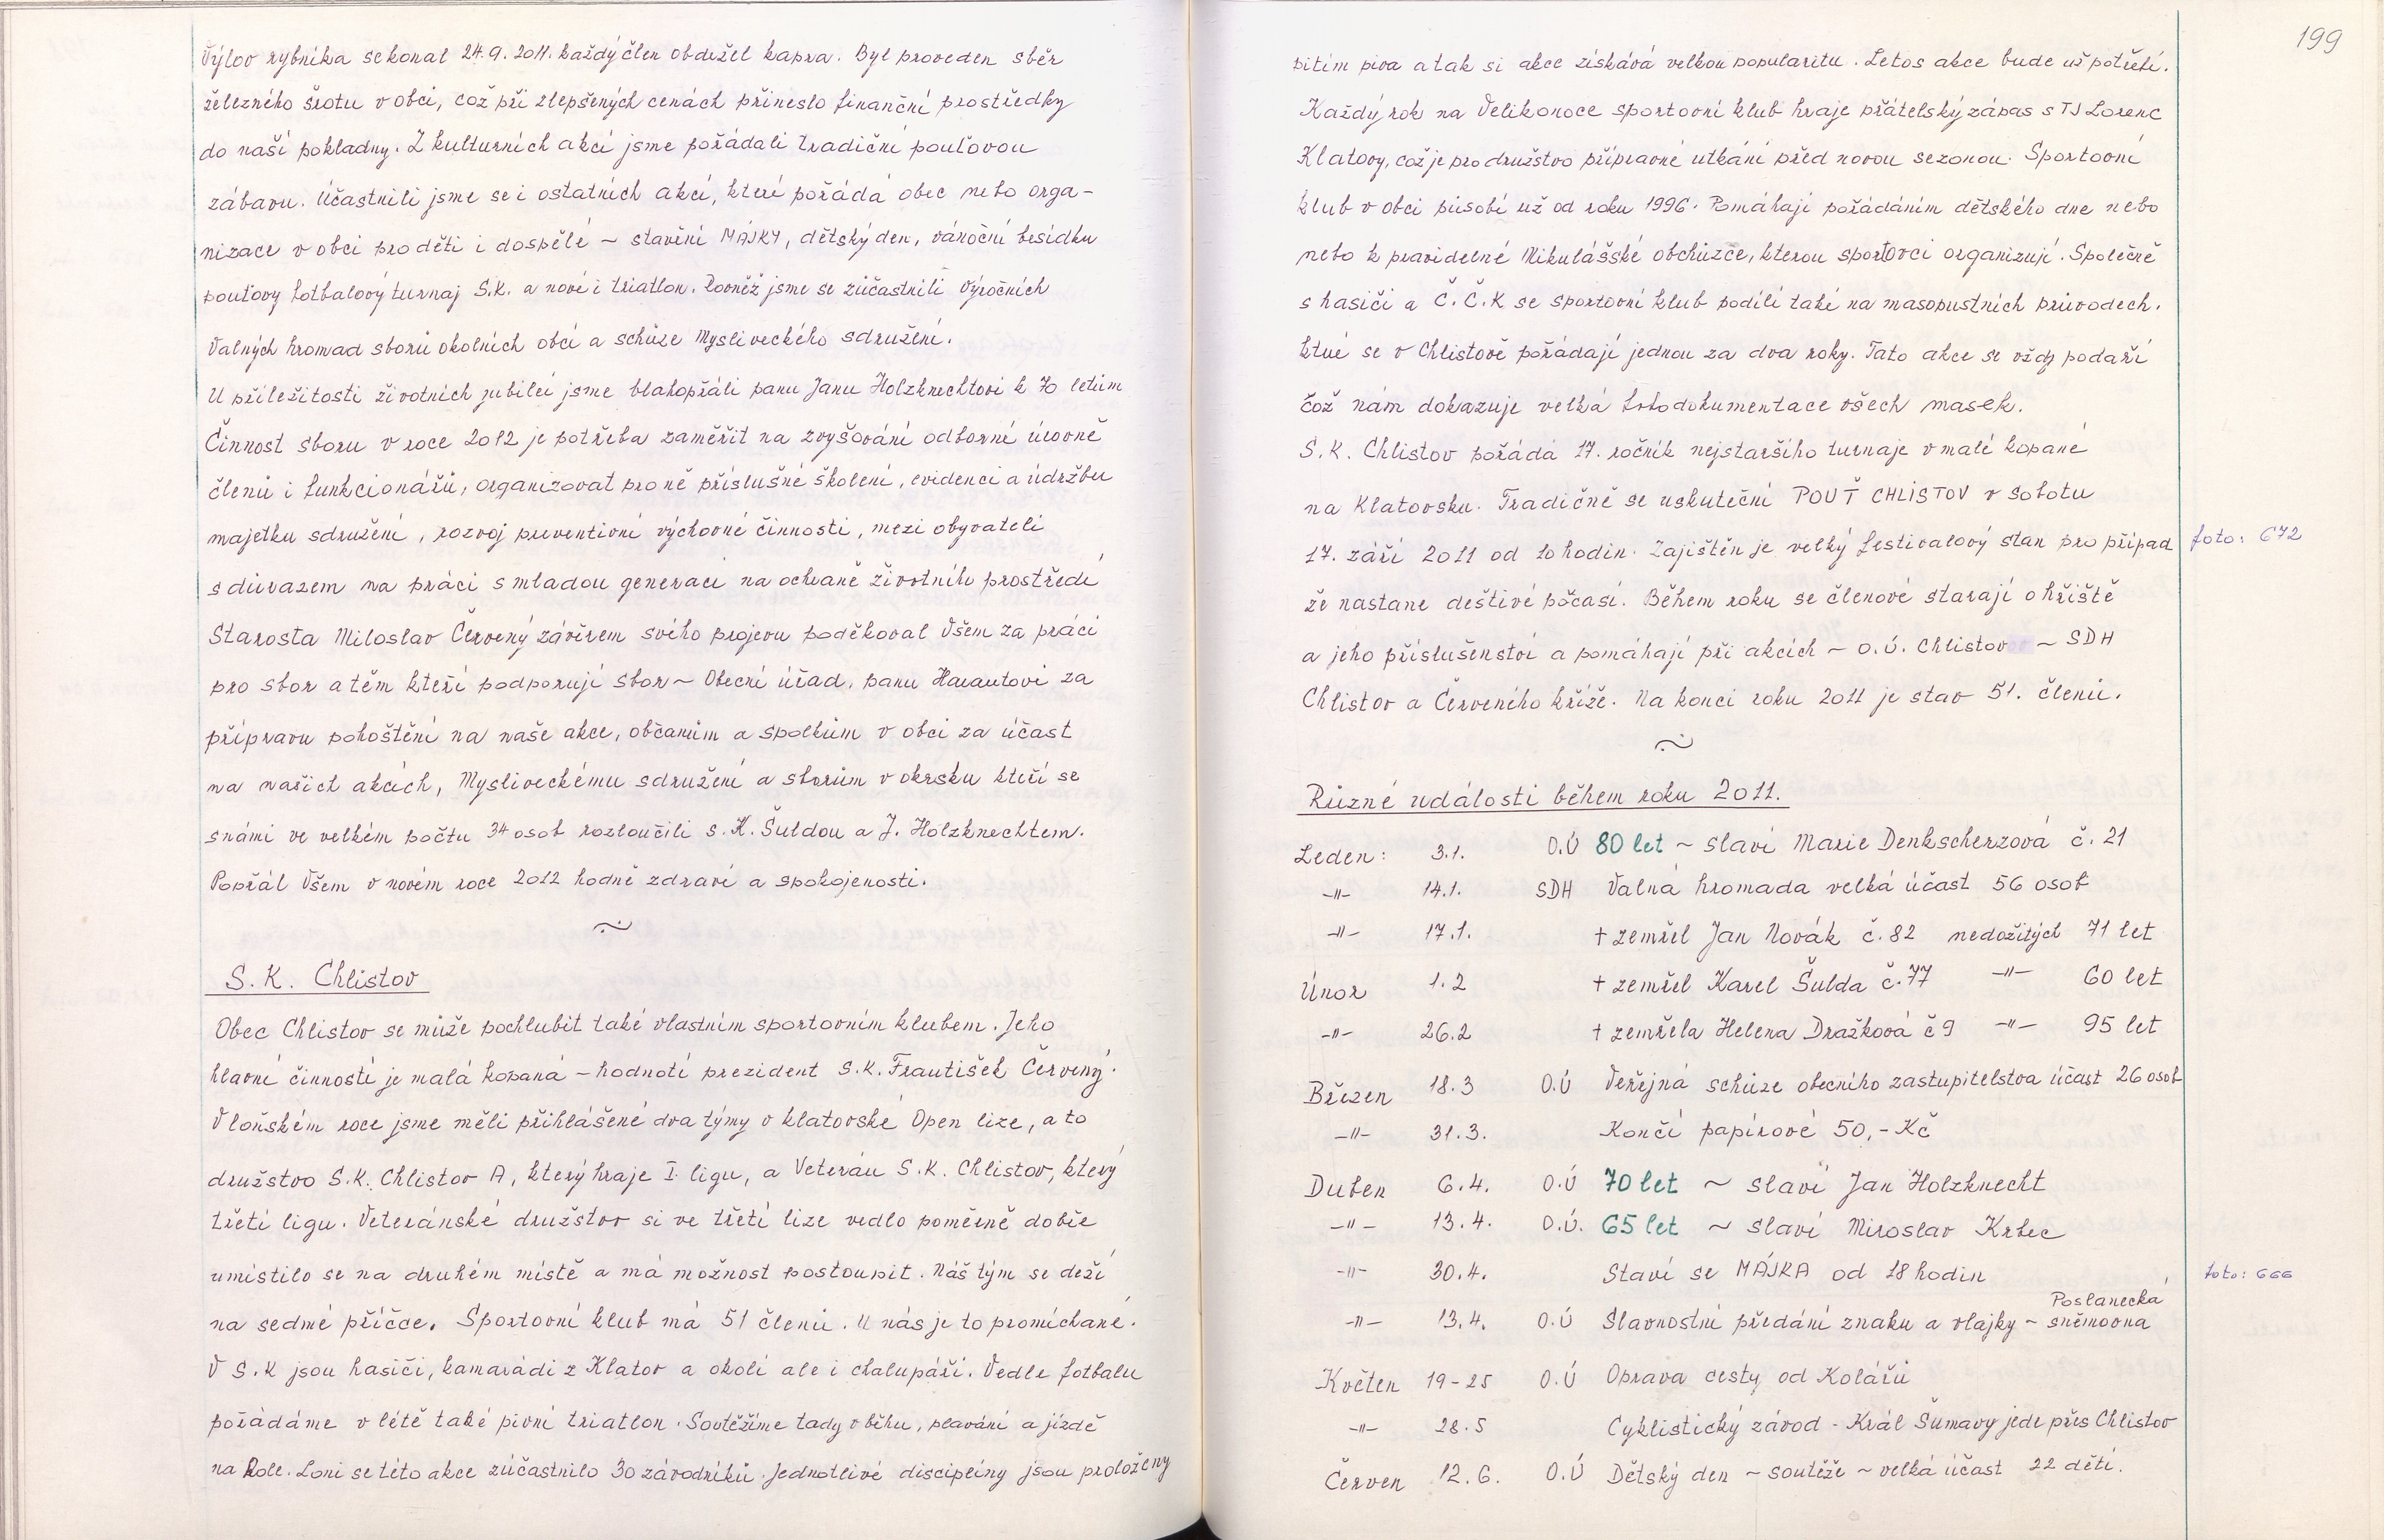 Výlov rybníka se konal 24.9. 2011. každý člen obdržel kapra. Byl proveden sběr
železného šrotu v obci, což při zlepšených cenách přineslo finanční prostředky
do naší pokladny. Z kulturních akcí jsme pořádali tradiční pouťovou
zábavu. Účastnili jsme se i ostatních akcí, které pořádá obec nebo orga-
nizace v obci pro děti i dospělé ~ stavění MÁJKY, dětský den, vánoční besídku
pouťový fotbalový turnaj S.K. a nově i triatlon. Rovněž jsme se zúčastnili Výročních
Valných hromad sborů okolních obcí a schůze Mysliveckého sdružení.
U příležitosti životních jubileí jsme blahopřáli panu Janu Holzknechtovi k 70 letům
Činnost sboru v roce 2012 je potřeba zaměřit na zvyšování odborné úrovně
členů i funkcionářů, organizovat pro ně příslušné školení, evidenci a údržbu
majetku sdružení, rozvoj preventivní výchovné činnosti, mezi obyvateli
s důrazem na práci s mladou generací na ochraně životního prostředí
Starosta Miloslav Červený závěrem svého projevu poděkoval Všem za práci
pro sbor a těm kteří podporují sbor ~ Obecní úřad, panu Harautovi za
přípravu pohoštění na naše akce, občanům a spolkům v obci za účast
na našich akcích, Mysliveckému sdružení a sborům v okrsku kteří se
s námi ve velkém počtu 34 osob rozloučili s. K. Šuldou a J. Holzknechtem.
Popřál Všem v novém roce 2012 hodně zdraví a spokojenosti.
~
S.K. Chlistov
Obec Chlistov se může pochlubit také vlastním sportovním klubem. Jeho
hlavní činností je malá kopaná - hodnotí prezident S.K. František Červený.
V loňském roce jsme měli přihlášené dva týmy v klatovské Open lize, a to
družstvo S.K. Chlistov A, který hraje I. ligu, a Veterán S.K. Chlistov, který
třetí ligu. Veteránské družstvo si ve třetí lize vedlo poměrně dobře
umístilo se na druhém místě a má možnost postoupit. Náš tým se drží
na sedmé příčce. Sportovní klub má 51 členů. U nás je to promíchané.
V S.K jsou hasiči, kamarádi z Klatov a okolí ale i chalupáři. Vedle fotbalu
pořádáme v létě také pivní triatlon. Soutěžíme tady v běhu, plavání a jízdě
na kole. Loni se této akce zúčastnilo 30 závodníků. Jednotlivé disciplíny jsou proloženy
199
pitím piva a tak si akce získává velkou popularitu. Letos akce bude už potřetí.
Každý rok na Velikonoce sportovní klub hraje přátelský zápas s TJ Lorenc
Klatovy, což je pro družstvo přípravné utkání před novou sezonou. Sportovní
klub v obci působí už od roku 1996. Pomáhají pořádáním dětského dne nebo
nebo k pravidelné Mikulášské obchůzce, kterou sportovci organizují. Společně
s hasiči a Č.Č.K se sportovní klub podílí také na masopustních průvodech.
které se v Chlistově pořádají jednou za dva roky. Tato akce se vždy podaří
což nám dokazuje velká fotodokumentace všech masek.
S.K. Chlistov pořádá 17. ročník nejstaršího turnaje v malé kopané
na Klatovsku. Tradičně se uskuteční POUŤ CHLISTOV v sobotu
17. září 2011 od 10 hodin. Zajištěn je velký festivalový stan pro případ foto: 672
že nastane deštivé počasí. Během roku se členové starají o hřiště
a jeho příslušenství a pomáhají při akcích ~ O.Ú. Chlistov ~ SDH
Chlistov a Červeného kříže. Na konci roku 2011 je stav 51. členů.
~
Různé události během roku 2011.
Leden: 3.1. O.Ú 80 let ~ slaví Marie Denkscherzová č. 21
-"- 14.1. SDH Valná hromada velká účast 56 osob
-"- 17.1. + zemřel Jan Novák č. 82 nedožitých 71 let
Únor 1.2 + zemřel Karel Šulda č. 77 -"- 60 let
-"- 26.2 + zemřela Helena Dražková č 9 -"- 95 let
Březen 18.3 O.Ú Veřejná schůze obecního zastupitelstva účast 26 osob
-"- 31.3. Končí papírové 50,- Kč
Duben 6.4. O.Ú 70 let ~ slaví Jan Holzknecht
-"- 13.4. O.Ú. 65 let ~ slaví Miroslav Krbec
-"- 30.4. Staví se MÁJKA od 18 hodin foto: 666
-"- 13.4. O.Ú Slavnostní předání znaku a vlajky ~ Poslanecká sněmovna
Květen 19-25 O.Ú Oprava cesty od Kolářů
-"- 28.5 Cyklistický závod - Král Šumavy jede přes Chlistov
Červen 12.6. O.Ú Dětský den ~ soutěže ~ velká účast 22 dětí.